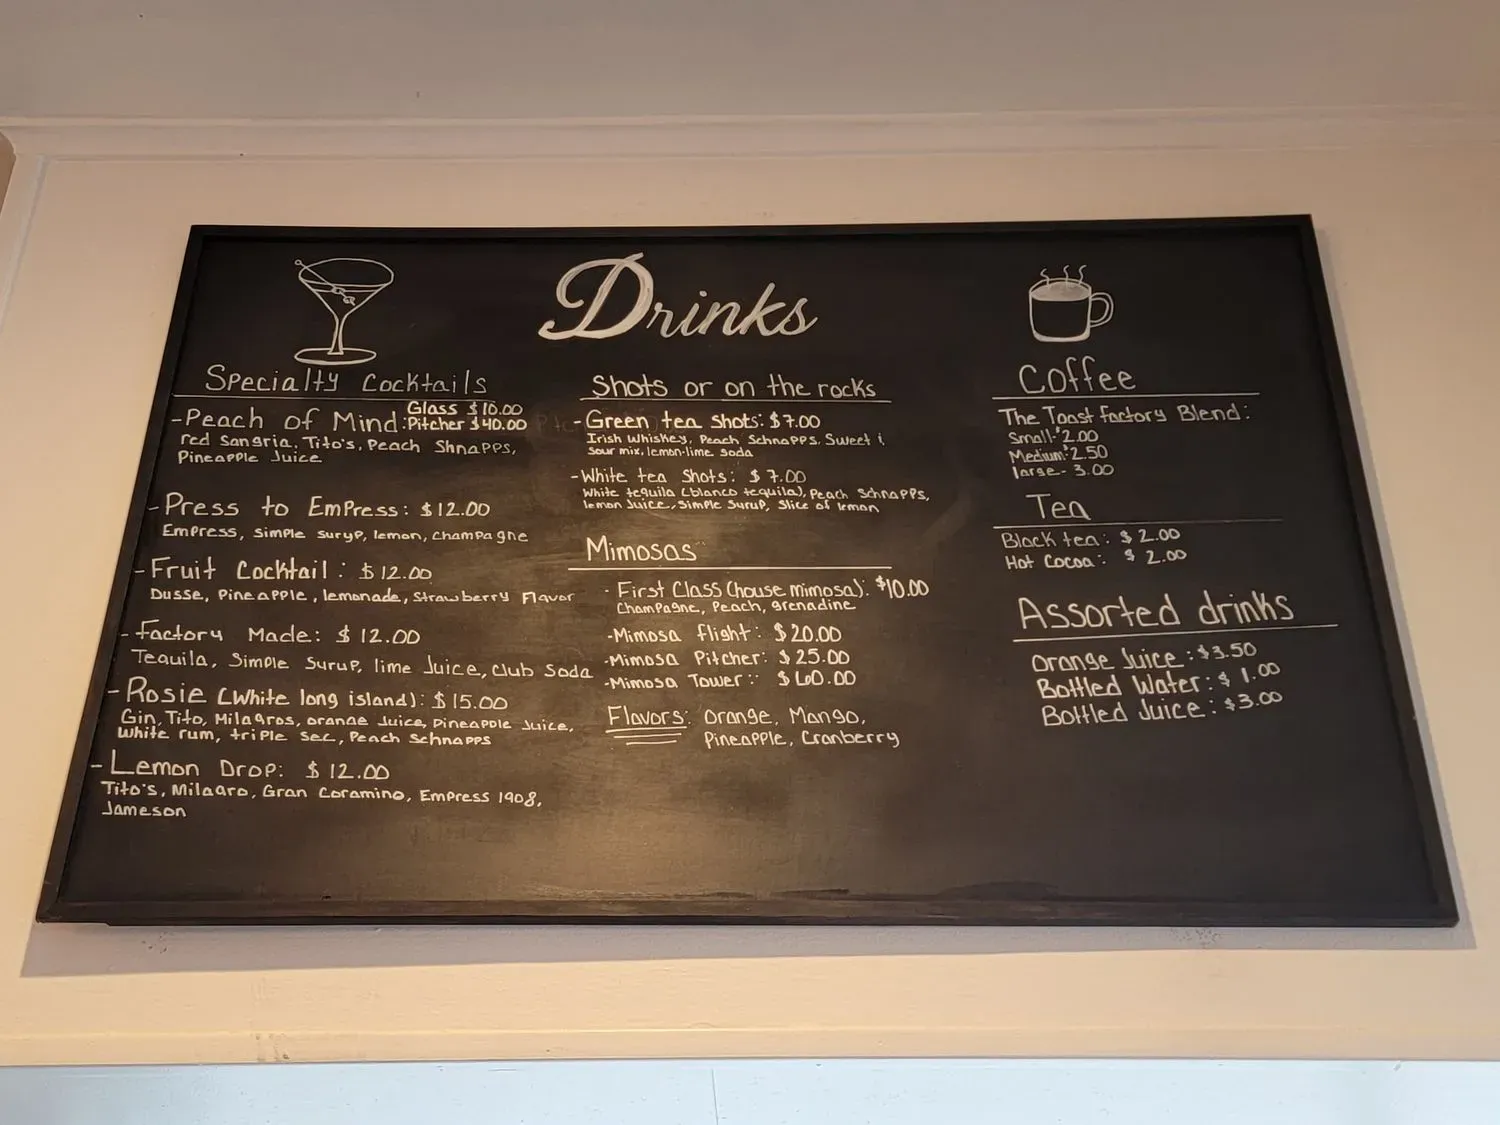 Drinks
Specialty Cocktails
-Peach of Mind: Glass $10.00
Pitcher $40.00
red Sangria, Tito's, Peach Shnapps,
Pineapple Juice
-Press to Empress: $12.00
Empress, simple suryp, lemon, champagne
-Fruit Cocktail: $12.00
Dusse, Pineapple, lemonade, strawberry Flavor
-Factory Made: $12.00
Tequila, Simple Surup, lime Juice, club Soda
-Rosie (White long island): $15.00
Gin, Tito, Milagros, orange Juice, Pineapple Juice,
White rum, triple sec, Peach Schnapps
-Lemon Drop: $12.00
Tito's, Milagro, Gran Coramino, Empress 1908,
Jameson
Shots or on the rocks
-Green tea shots: $7.00
Irish Whiskey, Peach Schnapps, Sweet i,
Sour mix, lemon-lime soda
-White tea Shots: $7.00
White tequila (blanco tequila), Peach Schnapps,
lemon Juice, Simple Surup, Slice of lemon
Mimosas
· First Class (house mimosa): $10.00
Champagne, Peach, grenadine
-Mimosa flight: $20.00
-Mimosa Pitcher: $25.00
-Mimosa Tower: $60.00
Flavors: Orange, Mango,
Pineapple, Cranberry
Coffee
The Toast factory Blend:
Small-$2.00
Medium-$2.50
large- 3.00
Tea
Black tea: $2.00
Hot Cocoa: $2.00
Assorted drinks
Orange Juice: $3.50
Bottled Water: $1.00
Bottled Juice: $3.00